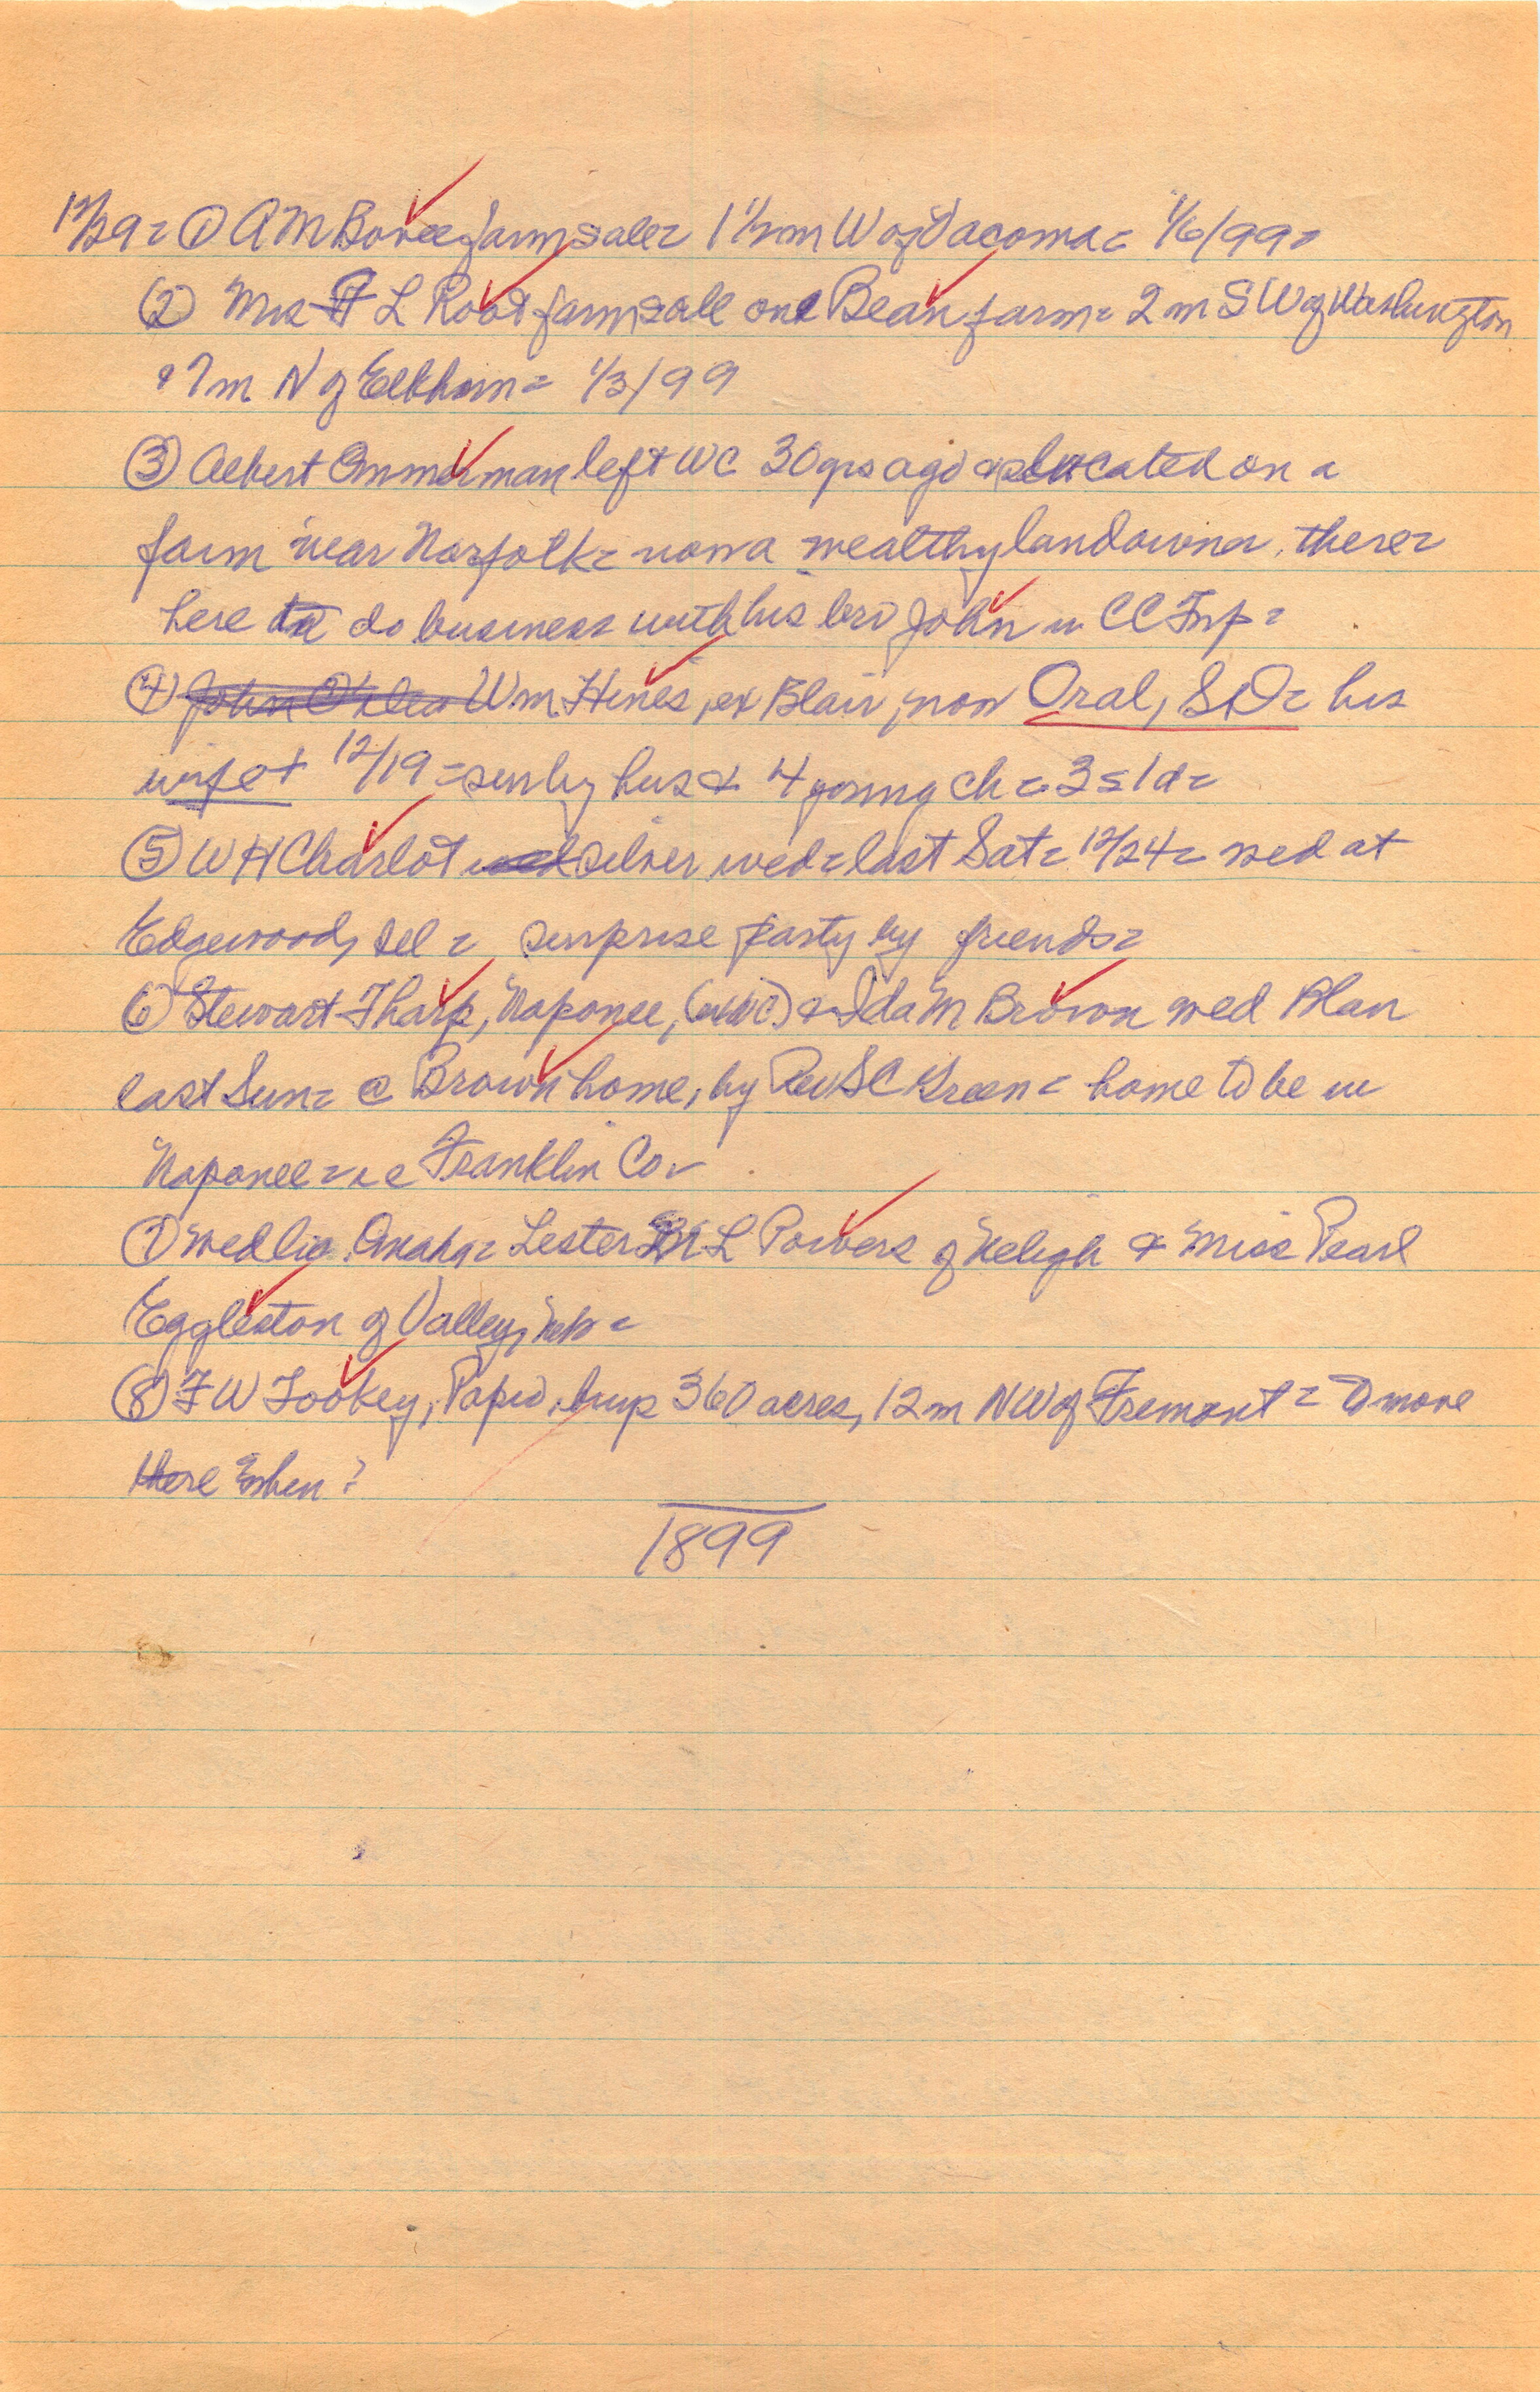 12/29 = ① A M Bovee farm sale = 1 1/2 m W of Vacoma = 1/6/99 =
② Mrs F L Root farm sale one Bean farm = 2 m SW of Washington
& 7 m N of Elkhorn = 1/3/99
③ Albert Ommerman left WC 30 yrs ago & located on a
farm near Norfolk = now a wealthy landowner there =
here to do business with his bro John in CC Twp =
④ John Wm Hines, ex Blair, now Oral, SD = his
wife + 12/19 = surv by hus & 4 young ch = 3s 1d =
⑤ W H Charlot silver wed = last Sat = 12/24 = wed at
Edgewood, = surprise party by friends =
⑥ Stewart Tharp, Naponee, (ex WC) & Ida M Brown wed Blair
last Sun = @ Brown home, by Rev SC Green = home to be in
Naponee = Franklin Co
⑦ Wed lic Omaha = Lester L Powers of Neligh & Miss Pearl
Eggleston of Valley, Neb =
⑧ F W Tookey, Papio, buys 360 acres, 12 m NW of Fremont = to move
there when?
1899